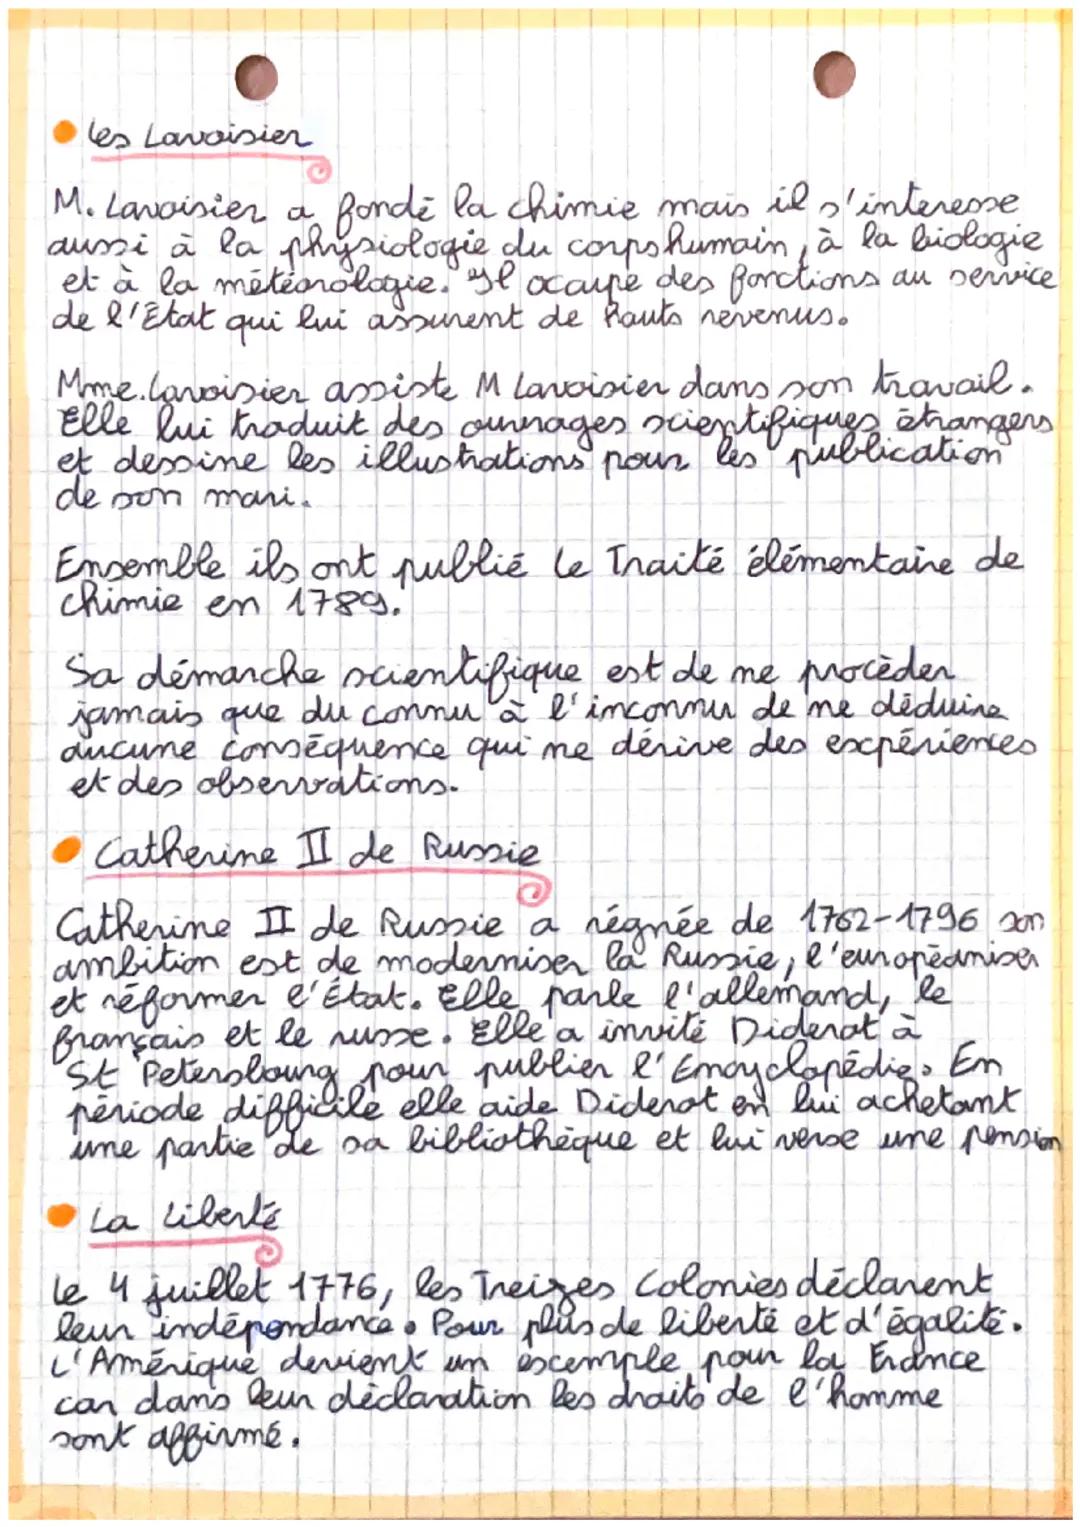 Les Lavoisier
M. Lavoisier a fondé la chimie mais il s'interesse
aussi à la physiologie du corps humain, à la biologie
et à la météorologie. Il occupe des fonctions au service
de l'État qui lui assurent de hauts revenus.
Mme. Lavoisier assiste M Lavoisier dans son travail.
Elle lui traduit des ouvrages scientifiques étrangers
et dessine les illustrations pour les publication
de son mari.
Ensemble ils ont publié le Traité élémentaire de
chimie en 1789.
Sa démarche scientifique est de ne procèder
jamais que du connu à l'inconnu de ne déduire
aucune conséquence qui ne dérive des expériences
et des observations.
Catherine II de Russie
Catherine II de Russie a régnée de 1762-1796 son
ambition est de moderniser la Russie, l'européaniser
et réformer l'État. Elle parle l'allemand, le
français et le russe. Elle a invité Diderot à
St Petersbourg pour publier l'Encyclopédie. En
période difficile elle aide Diderot en lui achetant
une partie de sa bibliothèque et lui verse une pension
La Liberté
Le 4 juillet 1776, les Treizes Colonies déclarent
leur indépendance. Pour plus de liberté et d'égalité.
L'Amérique devient un exemple pour la France
car dans leur déclaration les droits de l'homme
sont affirmé.